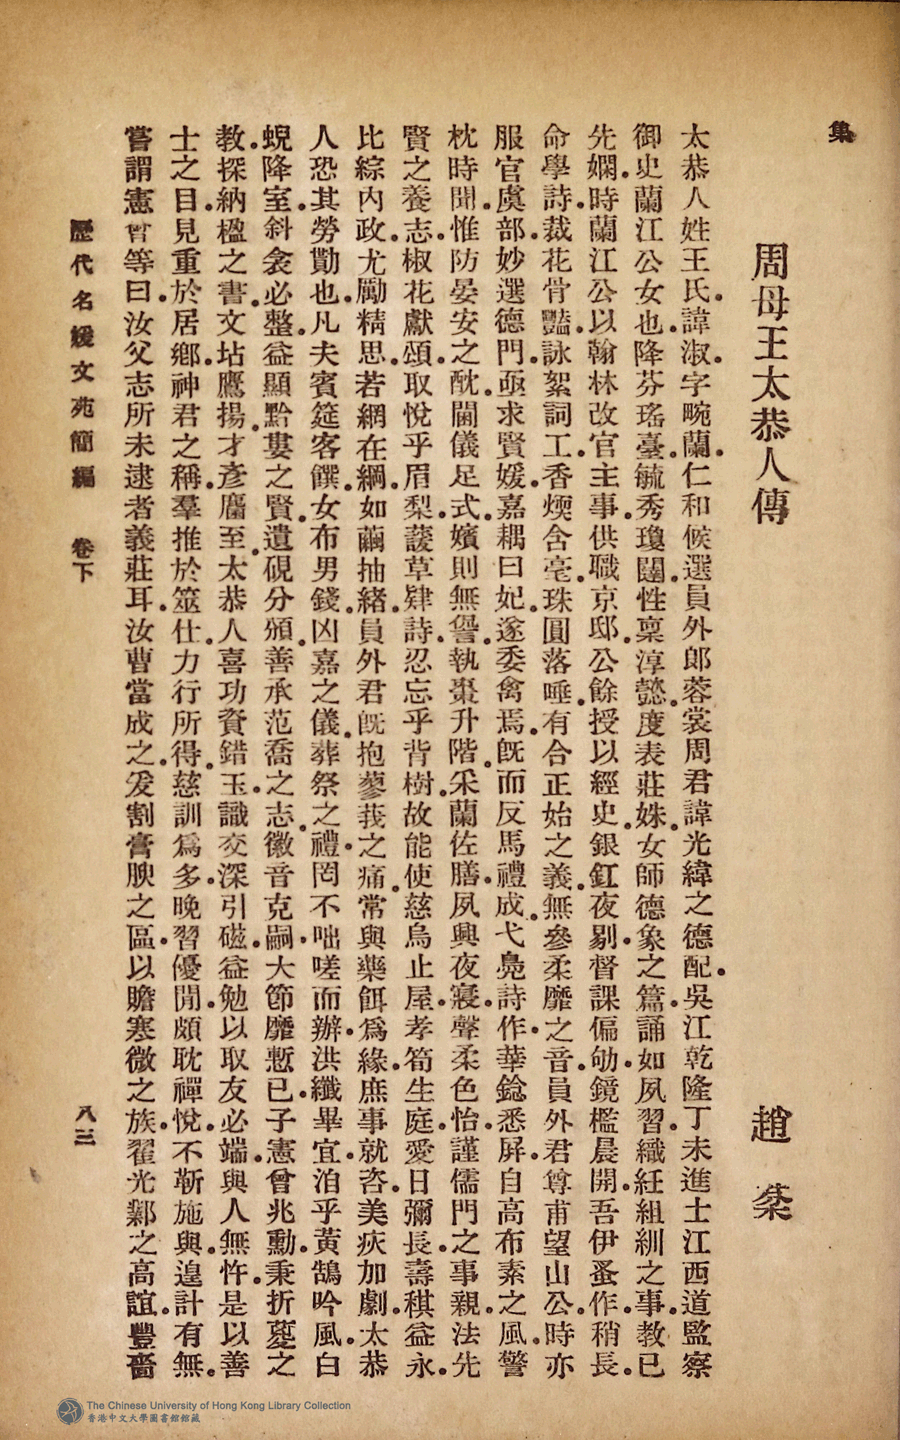 集
周母王太恭人傳　趙棻
太恭人姓王氏。諱淑。字畹蘭。仁和候選員外郎蓉裳周君諱光緯之德配。吳江乾隆丁未進士江西道監察
御史蘭江公女也。降芬瑤臺。毓秀瓊闥。性稟淳懿。度表莊姝。女師德象之篇。誦如夙習。織紝組紃之事。教已
先嫻。時蘭江公以翰林改官主事。供職京邸。公餘授以經史。銀釭夜剔。督課偏劬。鏡檻晨開。吾伊蚤作。稍長。
命學詩。裁花骨豔。詠絮詞工。香煗含毫。珠圓落唾。有合正始之義。無參柔靡之音。員外君尊甫望山公。時亦
服官虞部。妙選德門。亟求賢媛。嘉耦曰妃。遂委禽焉。旣而反馬禮成。弋鳧詩作。華錀悉屏。自高布素之風。警
枕時聞。惟防晏安之酖。閫儀足式。嬪則無諐。執棗升階。采蘭佐膳。夙興夜寢。聲柔色怡。謹儒門之事親。法先
賢之養志。椒花獻頌。取悅乎眉梨。諼草肄詩。忍忘乎背樹。故能使慈烏止屋。孝筍生庭。愛日彌長。壽祺益永。
比綜內政。尤勵精思。若網在綱。如繭抽緒。員外君旣抱蓼莪之痛。常與藥餌爲緣。庶事就咨。美疢加劇。太恭
人恐其勞勩也。凡夫賓筵客饌。女布男錢。凶嘉之儀。葬祭之禮。罔不咄嗟而辦。洪纖畢宜。洎乎黃鵠吟風。白
蜺降室。斜衾必整。益顯黔婁之賢。遺硯分頒。善承范喬之志。徽音克嗣。大節靡慙已。子憲曾兆勳。秉折葼之
教。探納楹之書。文坫鷹揚。才彥麕至。太恭人喜功資錯玉。識交深引磁。益勉以取友必端。與人無忤。是以善
士之目。見重於居鄉。神君之稱。羣推於筮仕。力行所得。慈訓爲多。晚習優閒。頗耽禪悅。不靳施與。遑計有無。
嘗謂憲曾等曰。汝父志所未逮者義莊耳。汝曹當成之。爰割膏腴之區。以贍寒微之族。翟光鄴之高誼。豐嗇
歷代名媛文苑簡編　卷下　八三
The Chinese University of Hong Kong Library Collection
香港中文大學圖書館館藏